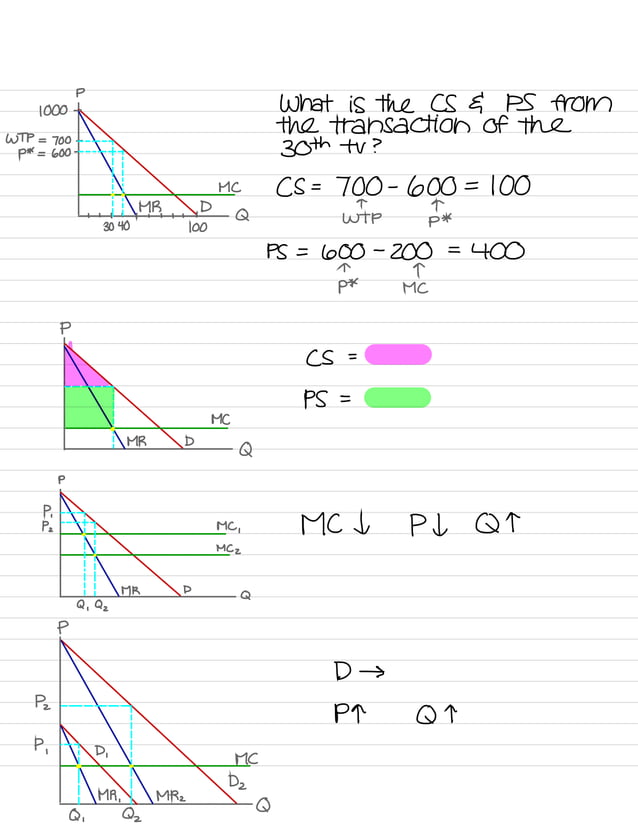 P
1000
WTP = 700
P* = 600
MC
MR
D
Q
30 40
100
What is the CS & PS from
the transaction of the
30th tv?
CS = 700 - 600 = 100
↑ ↑
WTP P*
PS = 600 - 200 = 400
↑ ↑
P* MC
P
MC
MR
D
Q
CS =
PS =
P
P₁
P₂
MC₁
MC₂
MR
D
Q
Q₁ Q₂
MC ↓ P↓ Q↑
P
P₂
P₁
D₁
MC
D₂
MR₁
MR₂
Q
Q₁
Q₂
D →
P↑ Q↑